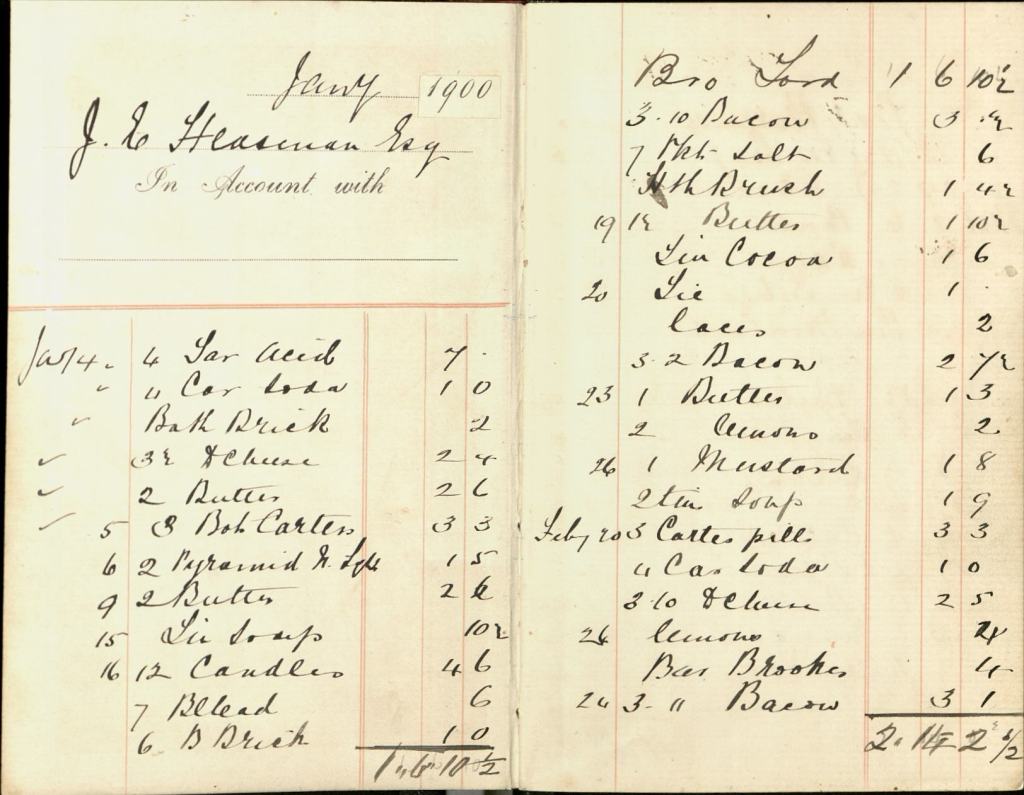 Jany 1900
J. E Heasman Esq
In Account with
Jany 4 4 Tar Acid 7 .
" " Car Soda 1 0
" Bath Brick 2
✓ 3½ D Cheese 2 4
✓ 2 Butter 2 6
✓ 5 3 Bot Carters 3 3
6 2 Pyramid N. Lgts 1 5
9 2 Butter 2 6
15 Tin Soap 10½
16 12 Candles 4 6
7 B Lead 6
6 B Brick 1 0
1 " 6 " 10 1/2
Bro Ford 1 6 10½
3. 10 Bacon 3 .½
7 Pkt Salt 6
Hth Brush 1 4½
19 1½ Butter 1 10½
Tin Cocoa 1 6
20 Tie 1 .
Laces 2
3. 2 Bacon 2 7½
23 1 Butter 1 3
2 Lemons 2
26 1 Mustard 1 8
2 tin Soap 1 9
Feby 20 3 Carters pills 3 3
" Car Soda 1 0
3.10 D Cheese 2 5
Lemons
Bar Brookes 4
3. " Bacon 3 1
2. 14 2 1/2